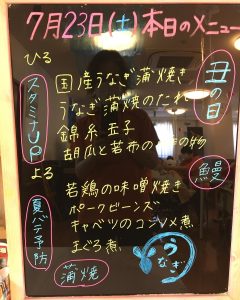 7月23日(土)本日のメニュー
ひる
国産うなぎ蒲焼き
うなぎ蒲焼のたれ
錦糸玉子
胡瓜と若布の酢の物
丑の日
スタミナUP
鰻
よる
若鶏の味噌焼き
ポークビーンズ
キャベツのコンソメ煮
まぐろ煮
夏バテ予防
蒲焼
うなぎ